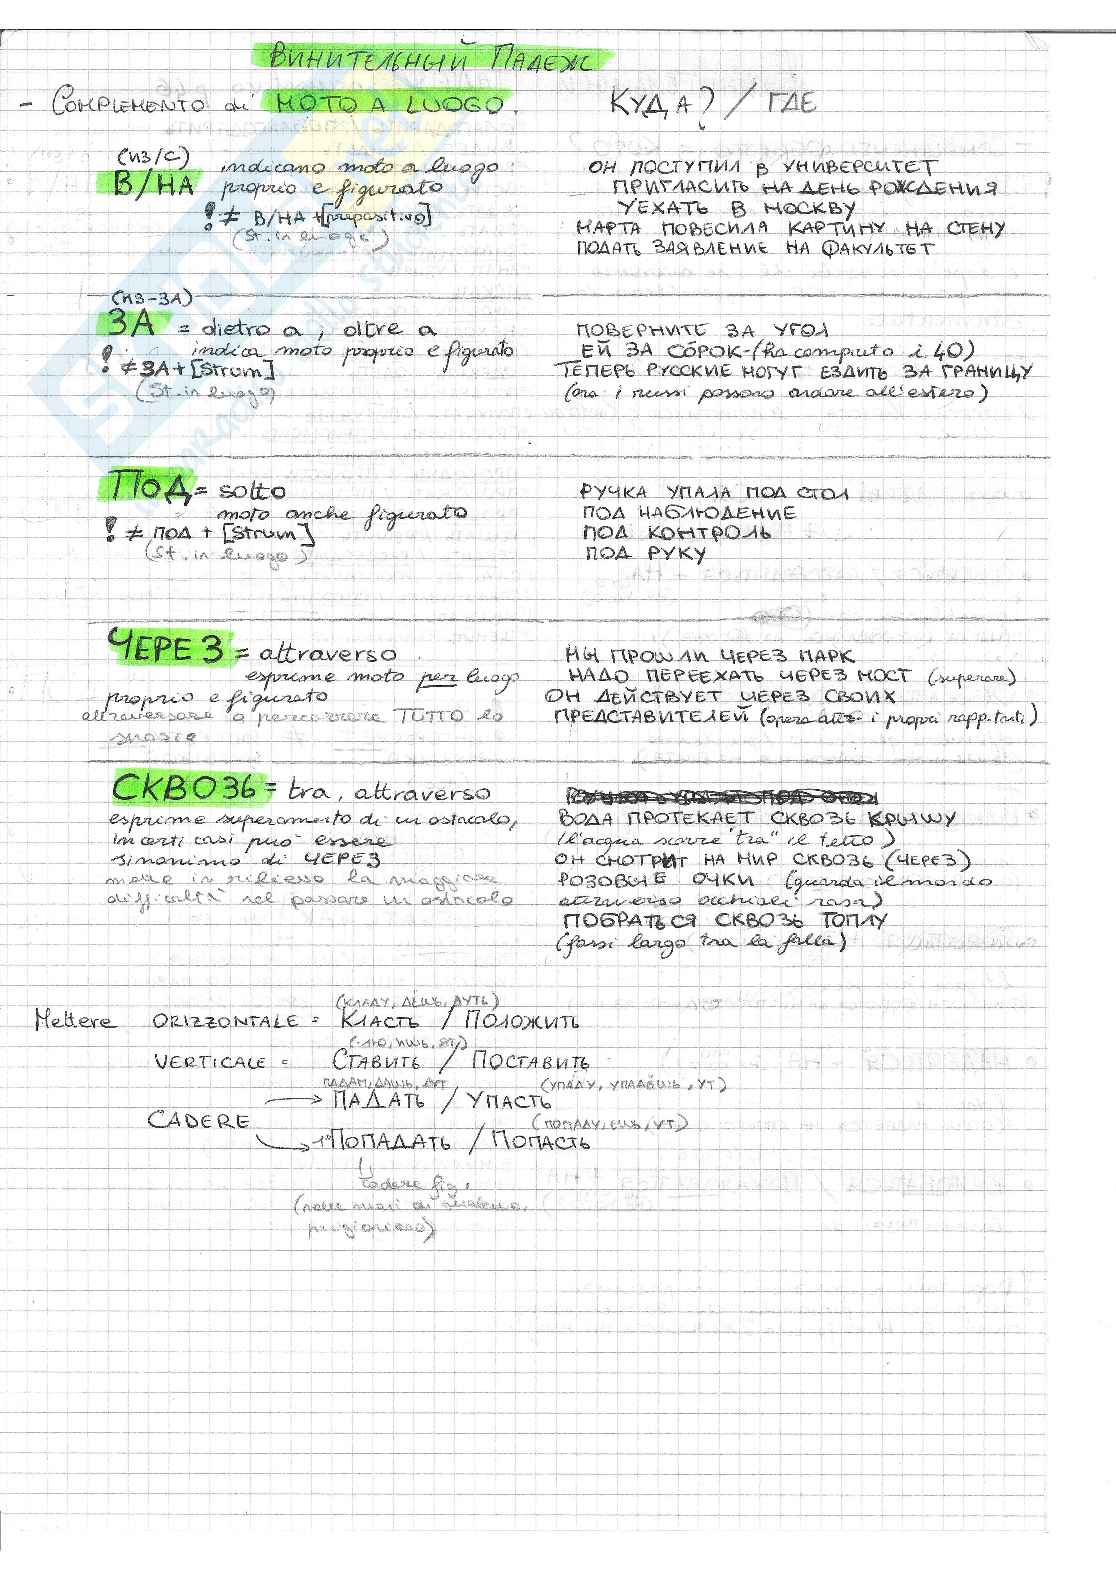 ВИНИТЕЛЬНЫЙ ПАДЕЖ
- COMPLEMENTO di MOTO A LUOGO. КУДА? / ГДЕ
(ИЗ/С)
В/НА indicano moto a luogo
proprio e figurato
! ≠ В/НА + [prepositivo]
(St. in luogo)
ОН ПОСТУПИЛ В УНИВЕРСИТЕТ
ПРИГЛАСИТЬ НА ДЕНЬ РОЖДЕНИЯ
УЕХАТЬ В МОСКВУ
МАРТА ПОВЕСИЛА КАРТИНУ НА СТЕНУ
ПОДАТЬ ЗАЯВЛЕНИЕ НА ФАКУЛЬТЕТ
(ИЗ-ЗА)
ЗА = dietro a, oltre a
indica moto proprio e figurato
! ≠ ЗА + [Strum]
(St. in luogo)
ПОВЕРНИТЕ ЗА УГОЛ
ЕЙ ЗА СОРОК - (ha compiuto i 40)
ТЕПЕРЬ РУССКИЕ МОГУТ ЕЗДИТЬ ЗА ГРАНИЦУ
(ora i russi possono andare all'estero)
ПОД = sotto
moto anche figurato
! ≠ ПОД + [Strum]
(St. in luogo)
РУЧКА УПАЛА ПОД СТОЛ
ПОД НАБЛЮДЕНИЕ
ПОД КОНТРОЛЬ
ПОД РУКУ
ЧЕРЕЗ = attraverso
esprime moto per luogo
proprio e figurato
attraversare o percorrere TUTTO lo
spazio
МЫ ПРОШЛИ ЧЕРЕЗ ПАРК
НАДО ПЕРЕЕХАТЬ ЧЕРЕЗ МОСТ (superare)
ОН ДЕЙСТВУЕТ ЧЕРЕЗ СВОИХ
ПРЕДСТАВИТЕЛЕЙ (opera attr. i propri rapp.tanti)
СКВОЗЬ = tra, attraverso
esprime superamento di un ostacolo,
in certi casi può essere
sinonimo di ЧЕРЕЗ
mette in rilievo la maggiore
difficoltà nel passare un ostacolo
ВОДА ПРОТЕКАЕТ СКВОЗЬ КРЫШУ
(l'acqua scorre "tra" il tetto)
ОН СМОТРИТ НА МИР СКВОЗЬ (ЧЕРЕЗ)
РОЗОВЫЕ ОЧКИ (guarda il mondo
attraverso occhiali rosa)
ПОБРАТЬСЯ СКВОЗЬ ТОЛПУ
(farsi largo tra la folla)
(КЛАДУ, ДЁШЬ, ДУТЬ)
Mettere ORIZZONTALE = КЛАСТЬ / ПОЛОЖИТЬ
VERTICALE = СТАВИТЬ / ПОСТАВИТЬ
(УПАДУ, УПАДЁШЬ, УТ)
CADERE → ПАДАТЬ / УПАСТЬ
(ПОПАДУ, ЕШЬ, УТ)
→ ПОПАДАТЬ / ПОПАСТЬ
cadere fig.
(nelle mani di qualcuno,
prigioniero)